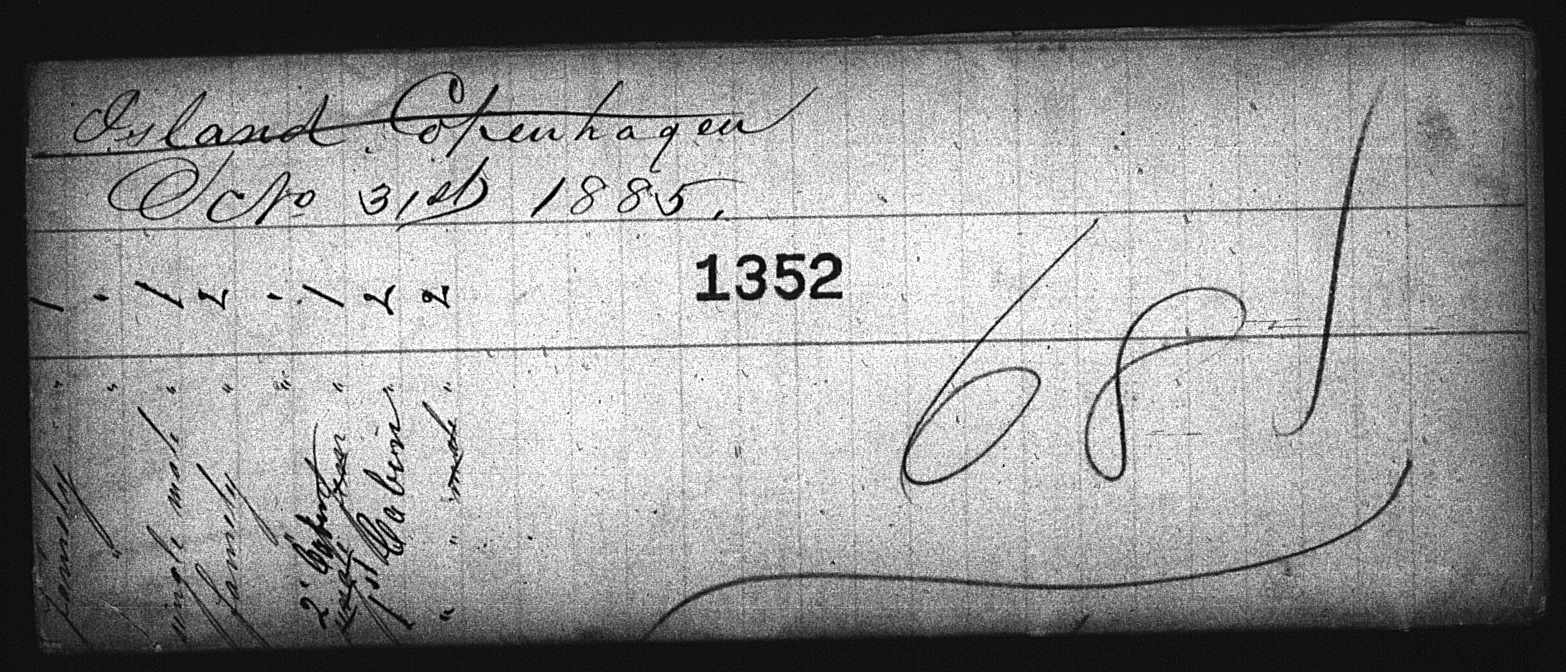 Island Copenhagen
Oct No 31st 1885.
1352
681
family " 1
" " "
single male " 1
family " 2
" "
2d Cabin " 1
1st Cabin " 2
" male " 2